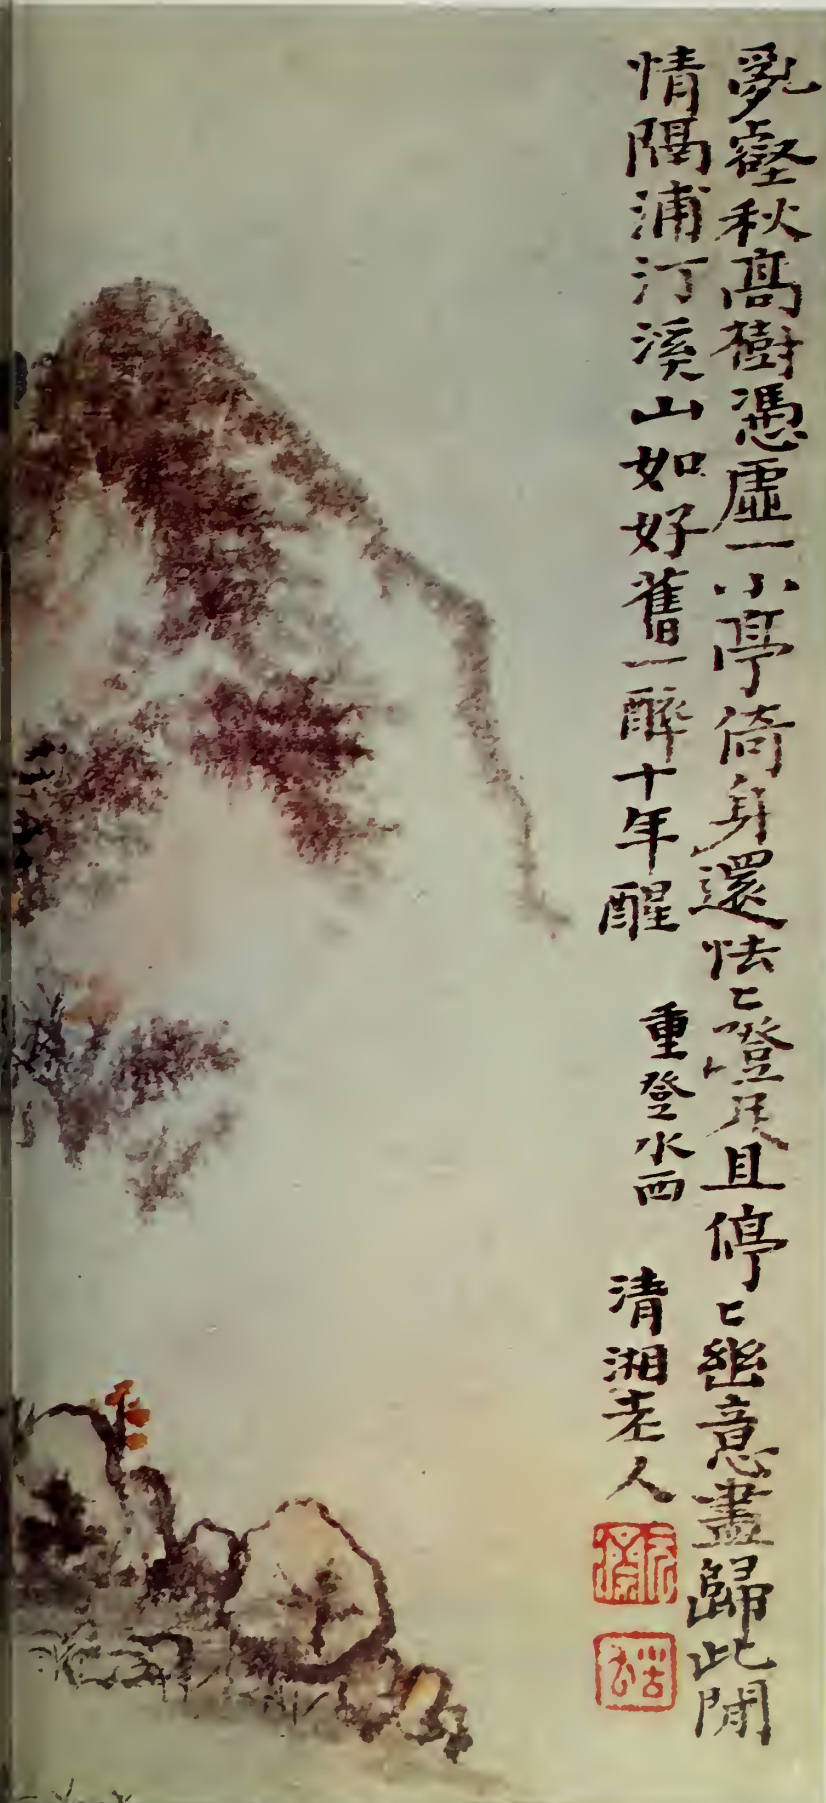 亂壑秋高樹憑虛一小亭倚身還怯〻蹬足且停〻幽意盡歸此閒
情隔浦汀溪山如好舊一醉十年醒
重登水西
清湘老人
元濟
苦瓜